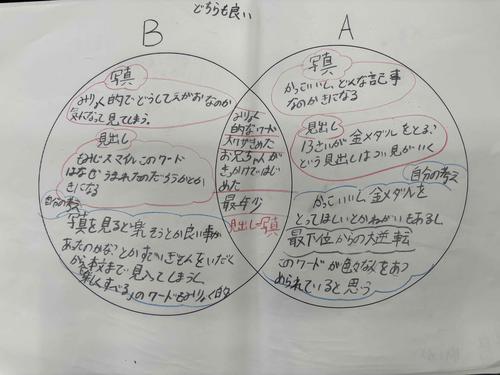 どちらも良い
B
A
写真
みりょく的でどうしてえがおなのか
気になって見てしまう。
見出し
もみじスマイルこのワードは
なぜうまれたのだろうかとか
きになる
自分の考え
写真を見ると楽そうとか良い事が
あったのかな?とかすごいぎもんをいだく
から本文まで見入ってしまうし
「楽しくすべる」のワードもみりょく的
みりょく
的なワード
大リざきめた
お兄ちゃんが
きっかけではじ
めた
最年少
見出し→写真
写真
かっこいいし、どんな記事
なのかきになる
見出し
13さいが金メダルをとる?
という見出しはつい見がいく
自分の考え
かっこいいし、金メダルを
とってほしいとかねがいもあるし
最下位からの大逆転
このワードが色々な人をあつ
められていると思う